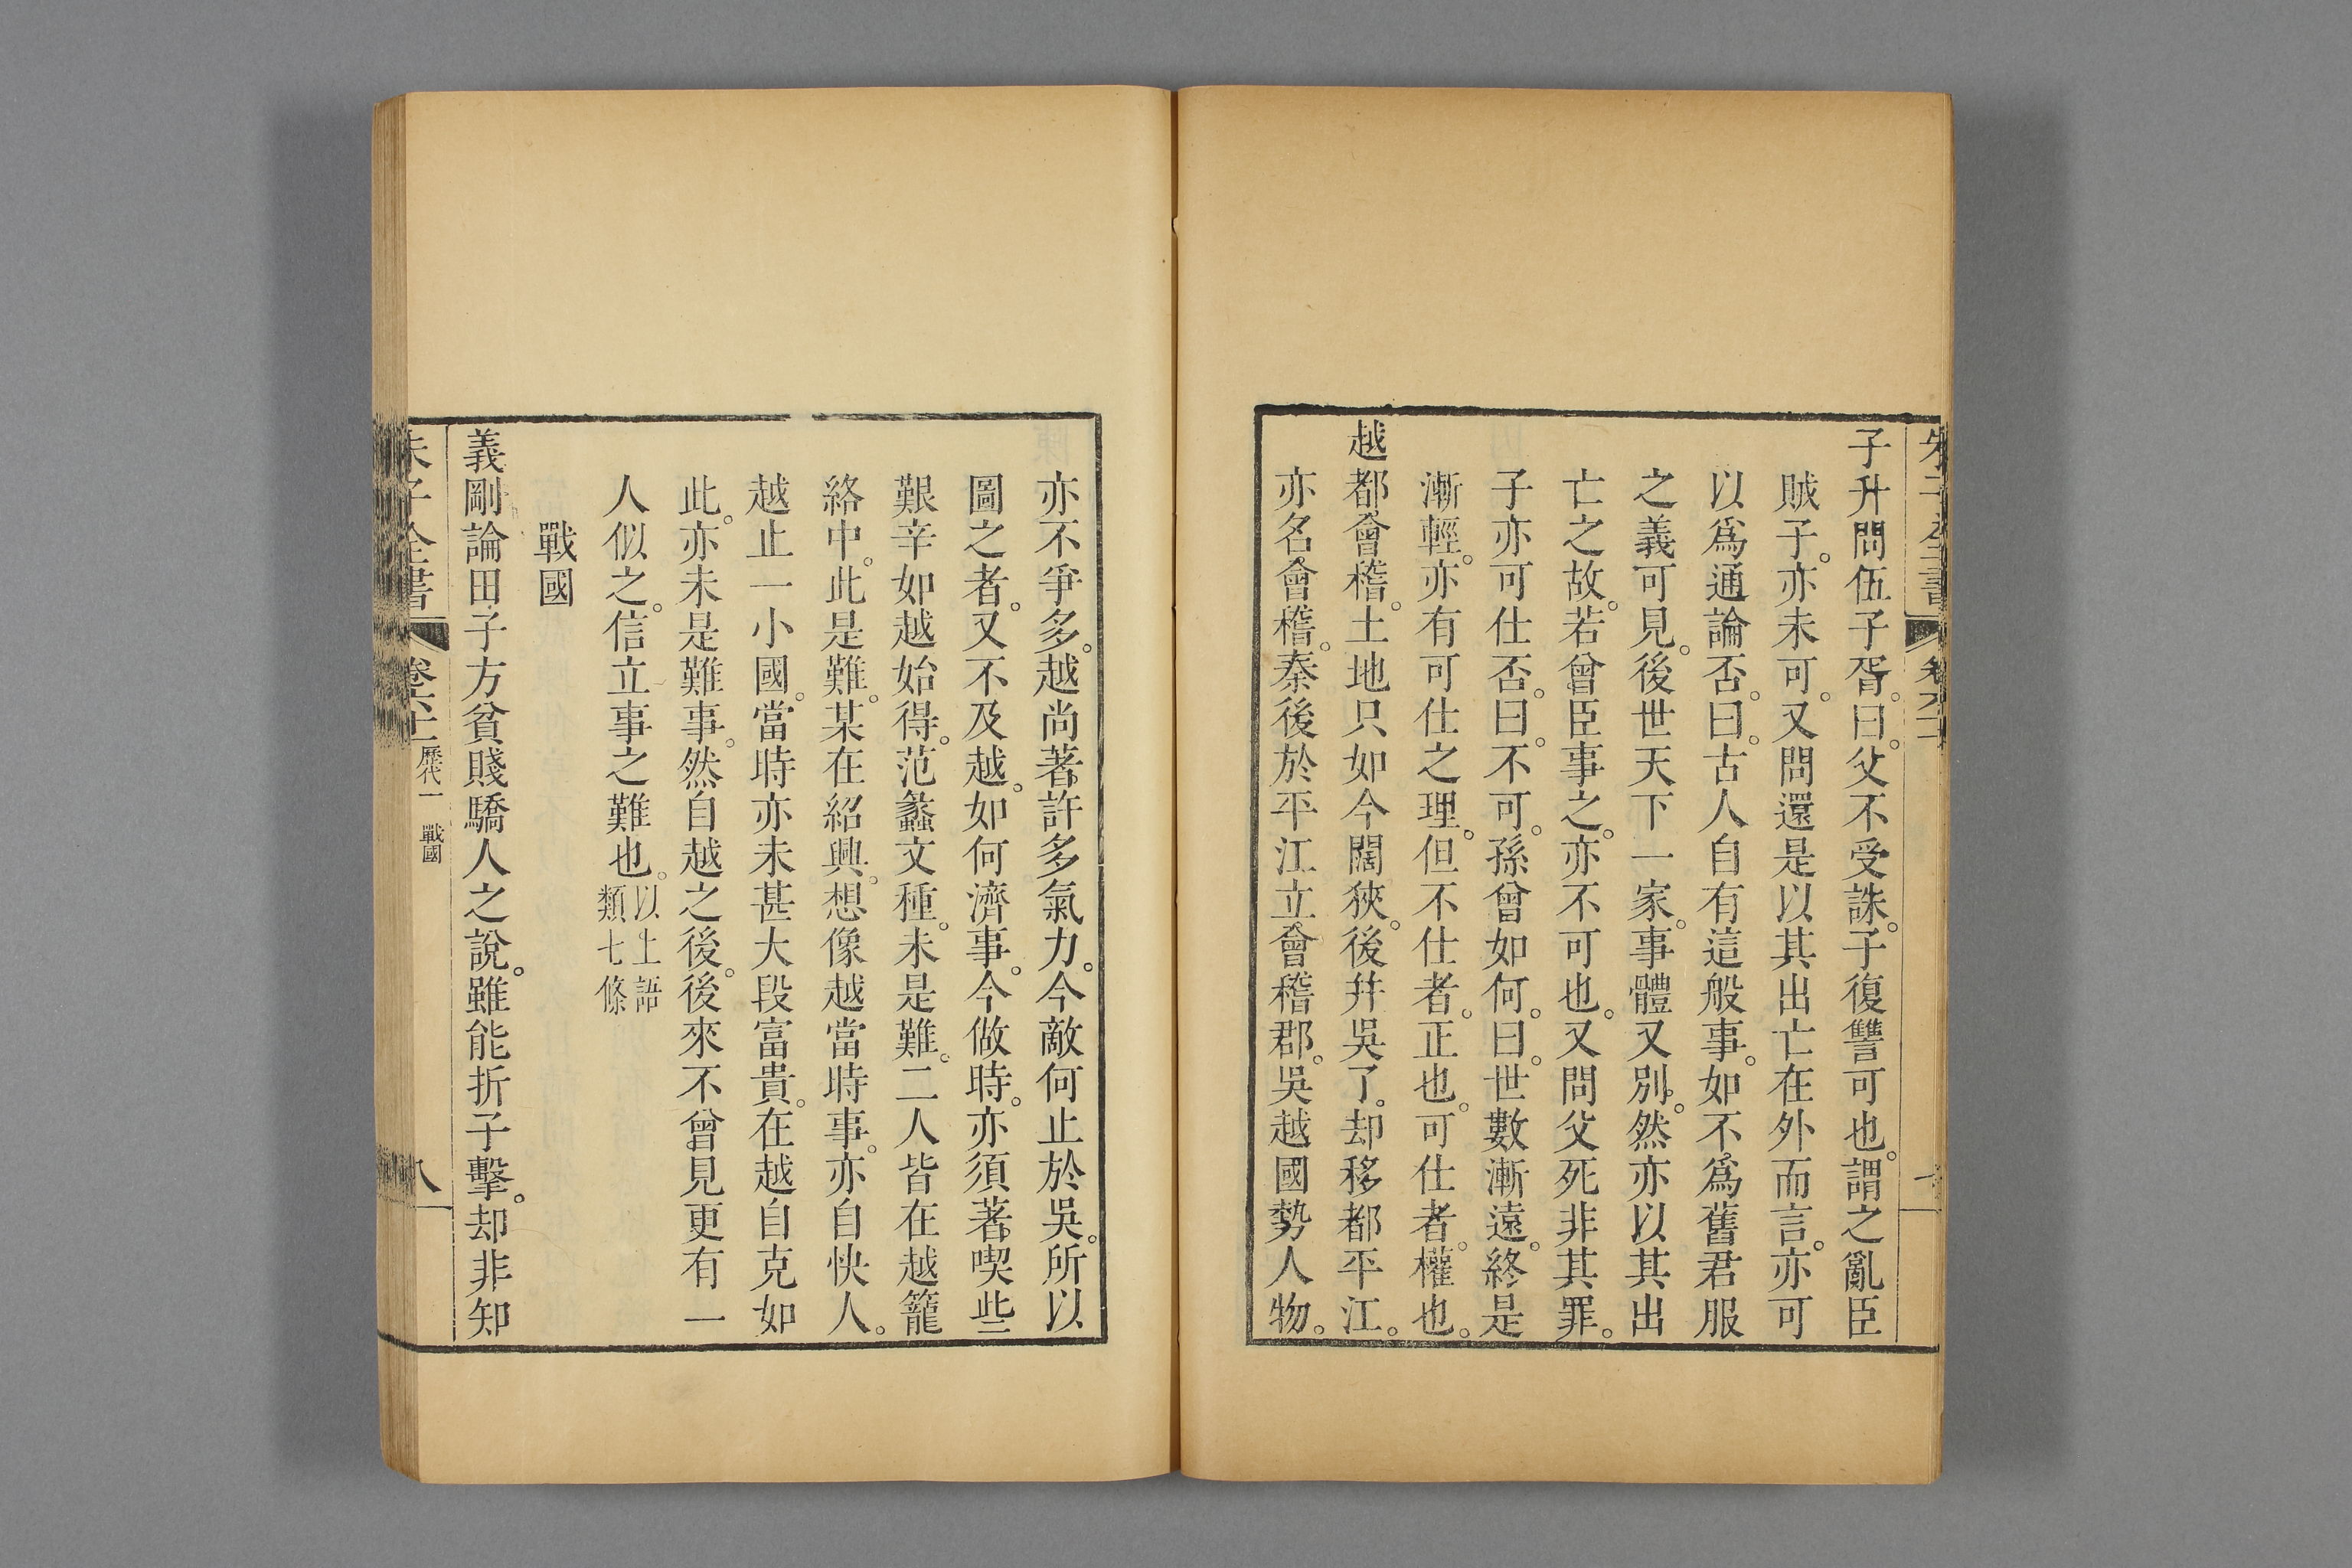 子升問伍子胥。曰。父不受誅。子復讐可也。謂之亂臣
賊子。亦未可。又問還是以其出亡在外而言。亦可
以爲通論否。曰。古人自有這般事。如不爲舊君服
之義可見。後世天下一家。事體又別。然亦以其出
亡之故。若曾臣事之。亦不可也。又問父死非其罪。
子亦可仕否。曰。不可。孫曾如何。曰。世數漸遠。終是
漸輕。亦有可仕之理。但不仕者。正也。可仕者。權也。
越都會稽。土地只如今闊狹。後幷吳了。却移都平江。
亦名會稽。秦後於平江立會稽郡。吳越國勢人物。
亦不爭多。越尚著許多氣力。今敵何止於吳。所以
圖之者。又不及越。如何濟事。今做時。亦須著喫些
艱辛如越始得。范蠡文種。未是難。二人皆在越籠
絡中。此是難。某在紹興。想像越當時事。亦自快人。
越止一小國。當時亦未甚大段富貴。在越自克如
此。亦未是難事。然自越之後。後來不曾見更有一
人似之。信立事之難也。以上語
類七條
戰國
義剛論田子方貧賤驕人之說。雖能折子擊。却非知
朱子全書
歷代一 戰國
八